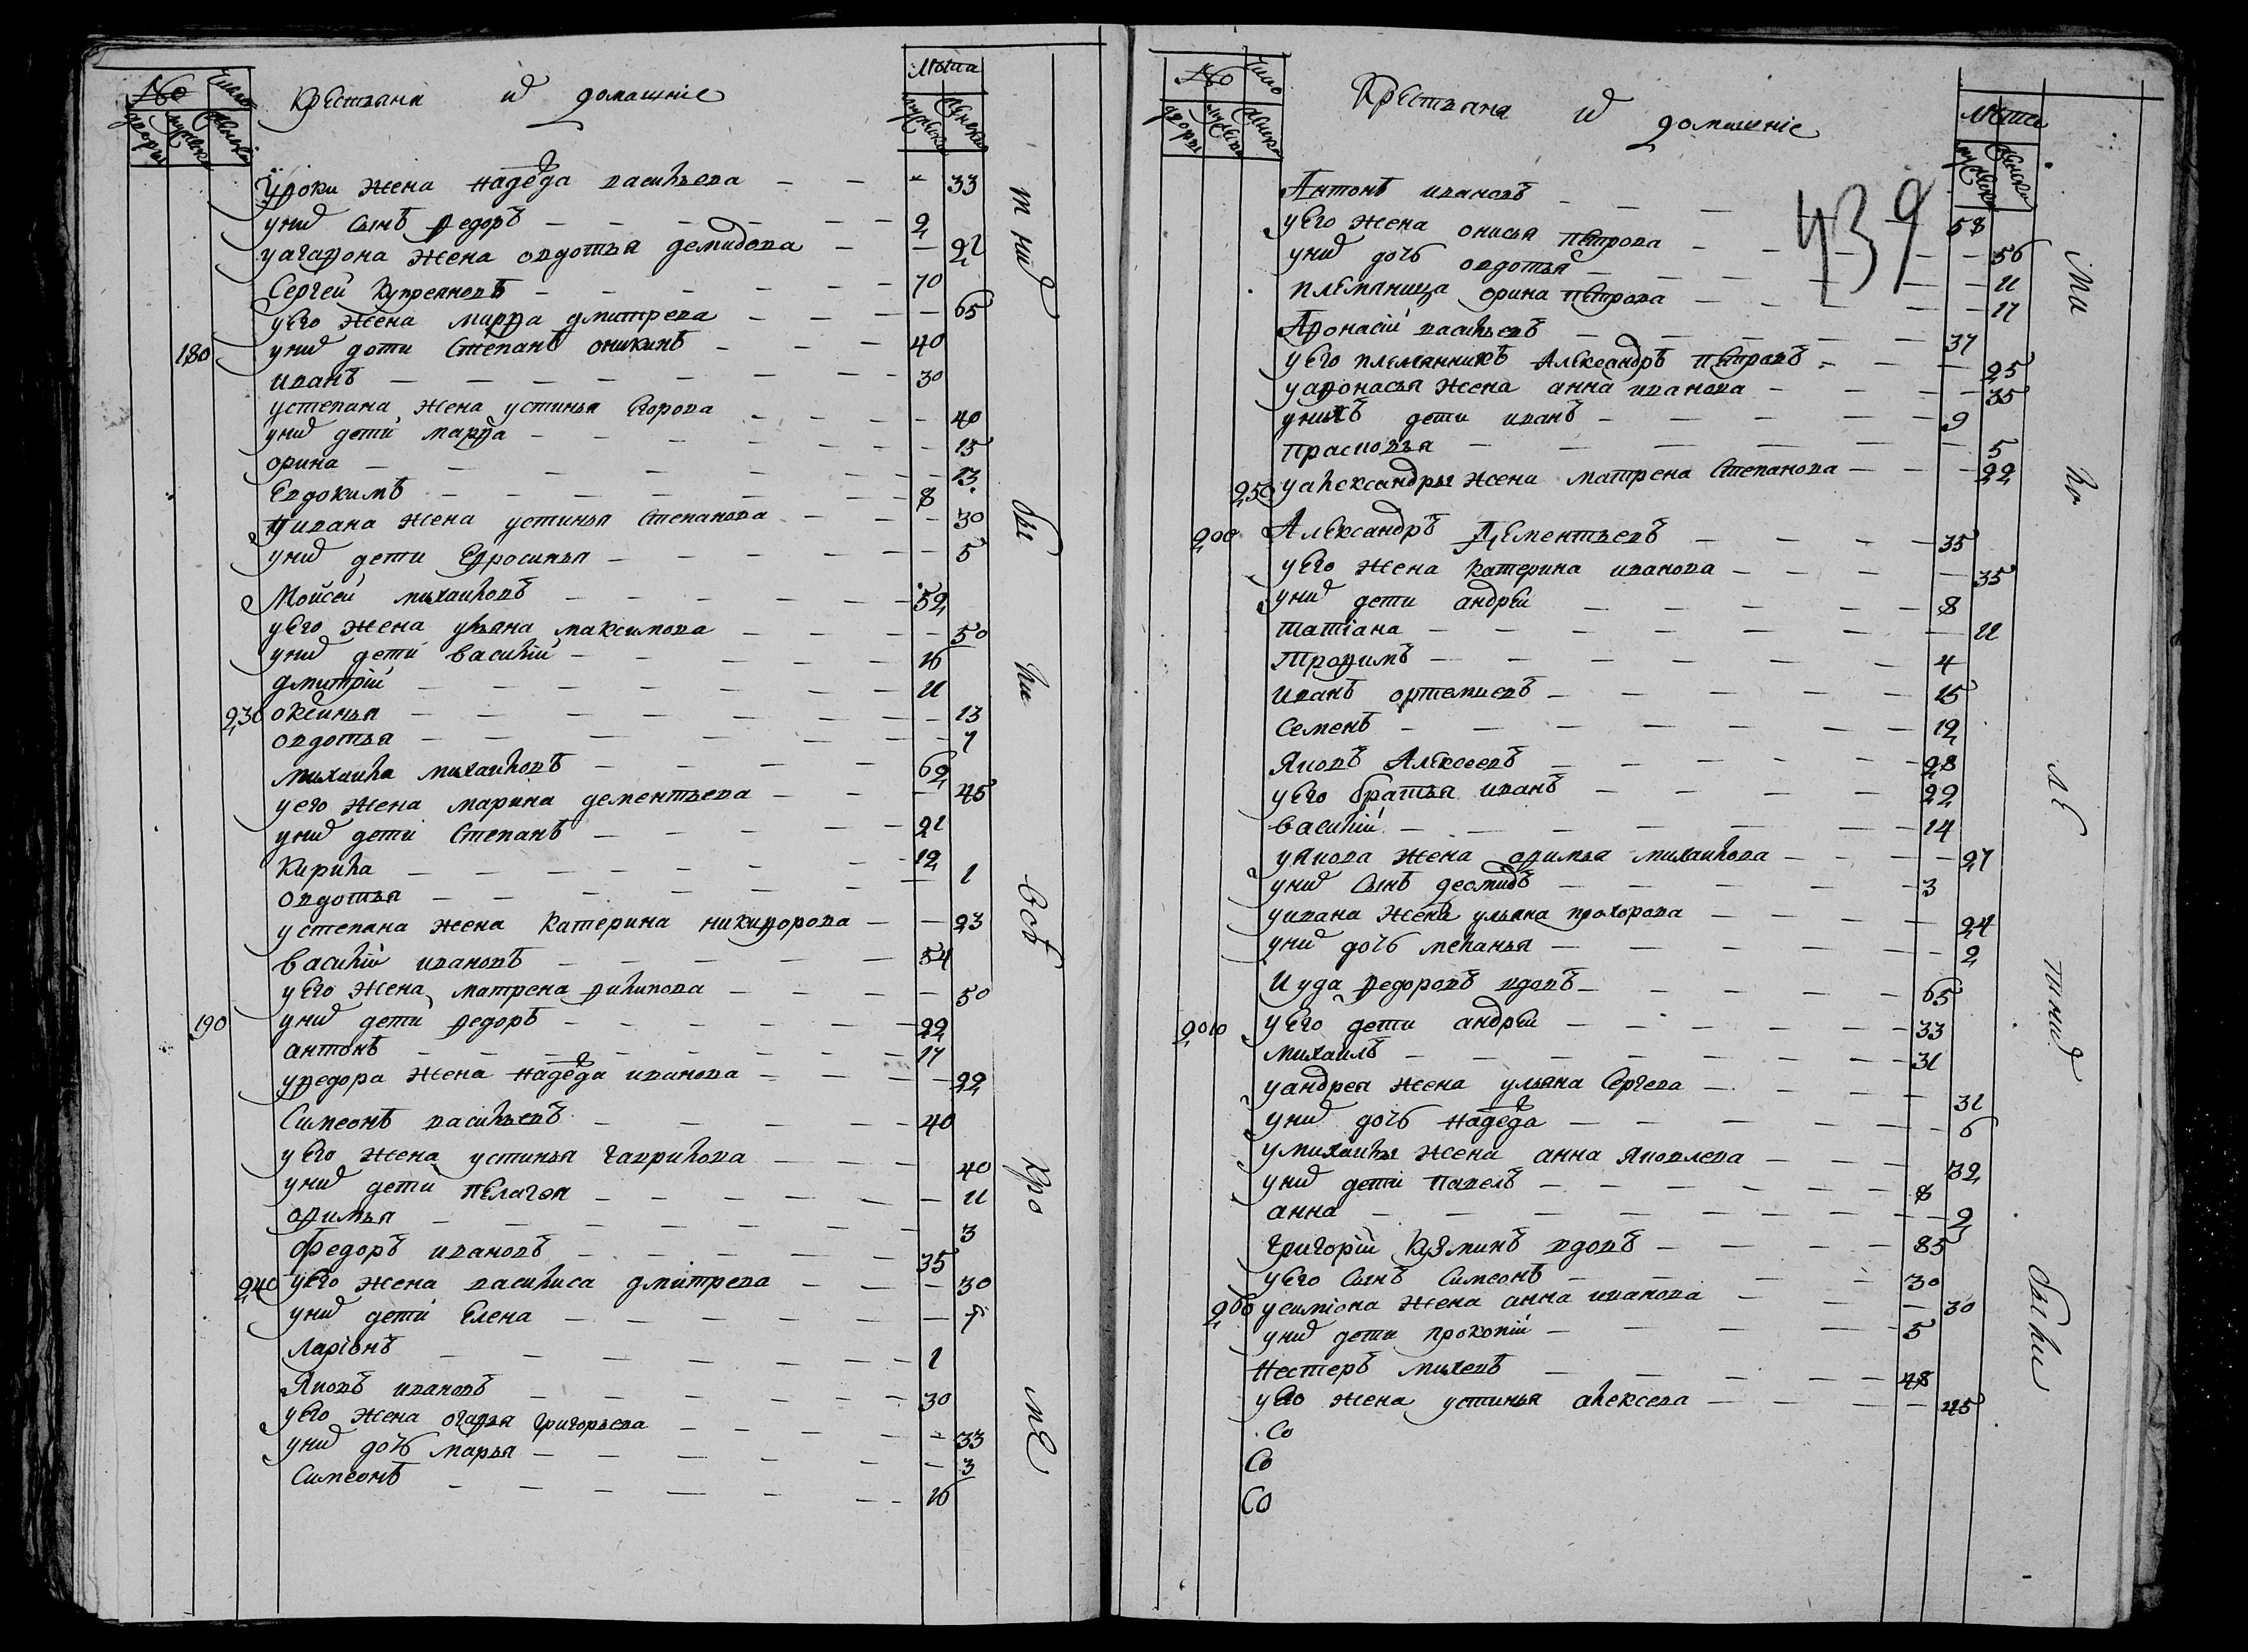 № число
дворы мужеска женска
Крестьяна и домашние
лѣта
мужеска женска
Уфоки жена надеѣда васильева — — — 33
у них сынъ федоръ — — 2
у агафона жена овдотья демидова — — 21
Сергей Купреяновъ — — 70
у Его жена марфа дмитрева — — 65
180 у них дети Степанъ оникинъ — — 40
иванъ — — 30
у степана жена устинья Егорова — — 40
у них дети марфа — — 15
орина — — 13
Евдокимъ — — 8
У ивана жена устинья Степанова — — 30
у них дети Ефросинья — — 5
Мойсей михаиловъ — — 52
у Его жена ульяна максимова — — 50
у них дети василий — — 16
дмитрий — — 11
230 оксинья — — 13
овдотья — — 7
михаила михаиловъ — — 62
у его жена марина дементьева — — 45
у них дети Степанъ — — 21
Кирила — — 12
овдотья — — 1
у степана жена Катерина никифорова — — 23
василий ивановъ — — 54
у Его жена матрена филипова — — 50
190 у них дети федоръ — — 22
антонъ — — 17
у федора жена надеда иванова — — 22
Симеонъ васильевъ — — 40
у Его жена устинья гаврилова — — 40
у них дети пелагея — — 11
офимья — — 3
Федоръ ивановъ — — 35
240 у Его жена василиса дмитрева — — 30
у них дети Елена — — 7
Ларіонъ — — 1
Яковъ ивановъ — — 30
у Его жена огафья григорьева — — 33
у них дочь марья — — 3
Симеонъ — — 16
т них бы ли всѣ кро мѣ
№ число
дворы мужеска женска
Крестьяна и домашние
лѣта
мужеска женска
439
Антонъ ивановъ — — 58
у Его жена онисья петрова — — 56
у них дочь овдотья — — 11
племяница орина петрова — — 17
Афонасий васильевъ — — 37
у Его племянникъ Александръ петровъ — — 25
у афонасья жена анна иванова — — 35
у нихъ дети иванъ — — 9
прасковья — — 5
250 у александры жена матрена Степанова — — 22
200 Александръ Дементьевъ — — 35
у Его жена катерина иванова — — 35
у них дети андрей — — 8
татіана — — 11
трофимъ — — 4
иванъ ортемиевъ — — 15
семенъ — — 12
Яковъ Алексеевъ — — 28
у Его братья иванъ — — 22
василий — — 14
у якова жена офимья михаилова — — 27
у них сынъ деомидъ — — 3
у ивана жена ульяна прохорова — — 24
у них дочь меланья — — 2
Иуда федоровъ вдовъ — — 65
у Его дети андрей — — 33
михаилъ — — 31
у андрея жена ульяна Сергева — — 31
у них дочь надеда — — 6
у михаилы жена анна яковлева — — 32
у них дети павелъ — — 8
анна — — 2
григорий Кузминъ вдовъ — — 85
у Его сынъ Симеонъ — — 30
260 у симіона жена анна иванова — — 30
у них дети прокопий — — 5
нестеръ михевъ — — 48
у Его жена устинья алексева — — 45
Со
Со
Со
ма ло лѣ тних были